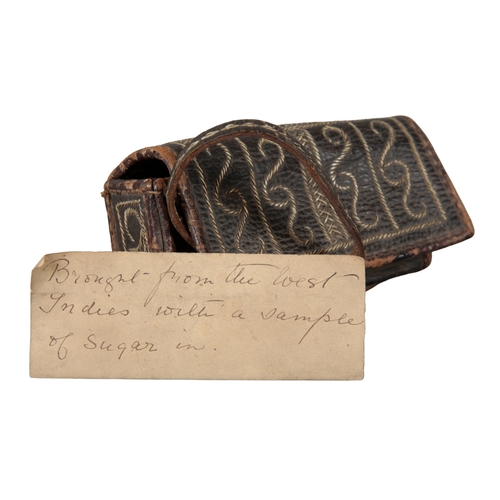 Brought from the West
Indies with a sample
of Sugar in.